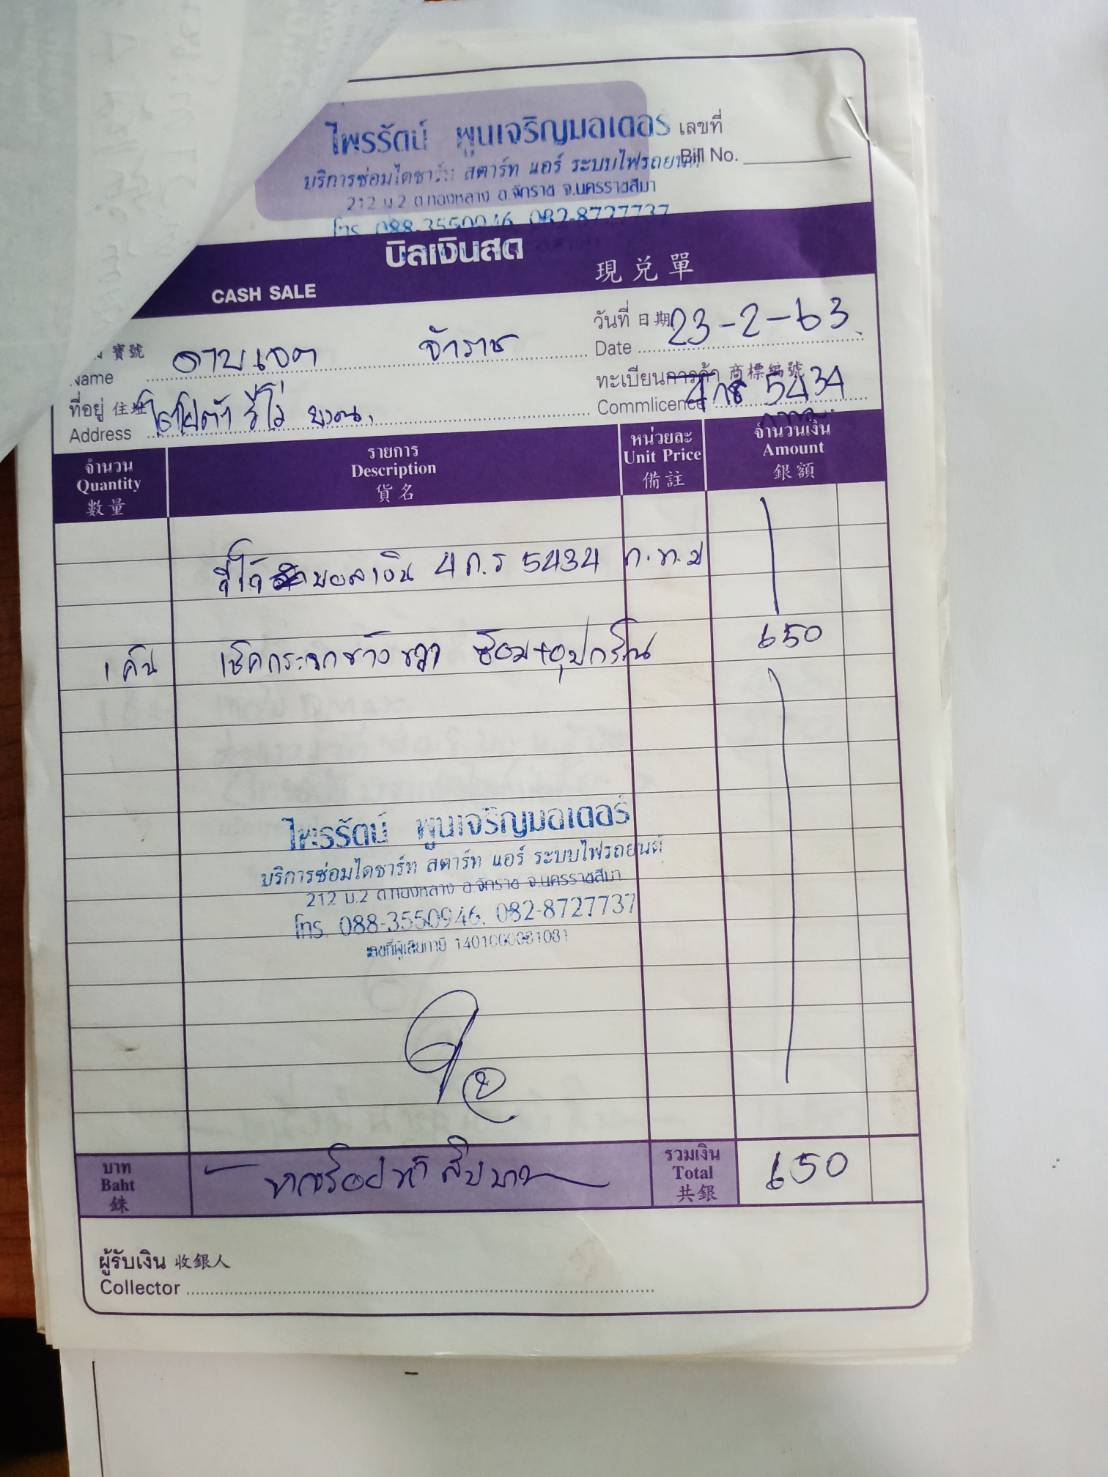 ไพรรัตน์ พูนเจริญมอเตอร์
เลขที่
Bill No.
บริการซ่อมไดชาร์ท สตาร์ท แอร์ ระบบไฟรถยนต์
212 ม.2 ต.ทองหลาง อ.จักราช จ.นครราชสีมา
โทร. 088-3550946, 082-8727737
บิลเงินสด
CASH SALE
現兌單
วันที่ 日期 23-2-63
Date
寶號 ดาบเจต จักราช
Name
ทะเบียนการค้า 商標編號
Commlicence 4กร 5434
ที่อยู่ 住址 โตโยต้า วีโก้
Address
จำนวน Quantity 數量
รายการ Description 貨名
หน่วยละ Unit Price 備註
จำนวนเงิน Amount 銀額
วีโก้ บอลเงิน 4 ก.ร 5434 ก.ท.ม
1 คัน เช็คกระจกข้าง ขวา ซ่อม+อุปกรณ์ 650
ไพรรัตน์ พูนเจริญมอเตอร์
บริการซ่อมไดชาร์ท สตาร์ท แอร์ ระบบไฟรถยนต์
212 ม.2 ต.ทองหลาง อ.จักราช จ.นครราชสีมา
โทร. 088-3550946, 082-8727737
เลขที่ผู้เสียภาษี
บาท Baht 銖
หกร้อยห้าสิบบาท
รวมเงิน Total 共銀
650
ผู้รับเงิน 收銀人
Collector